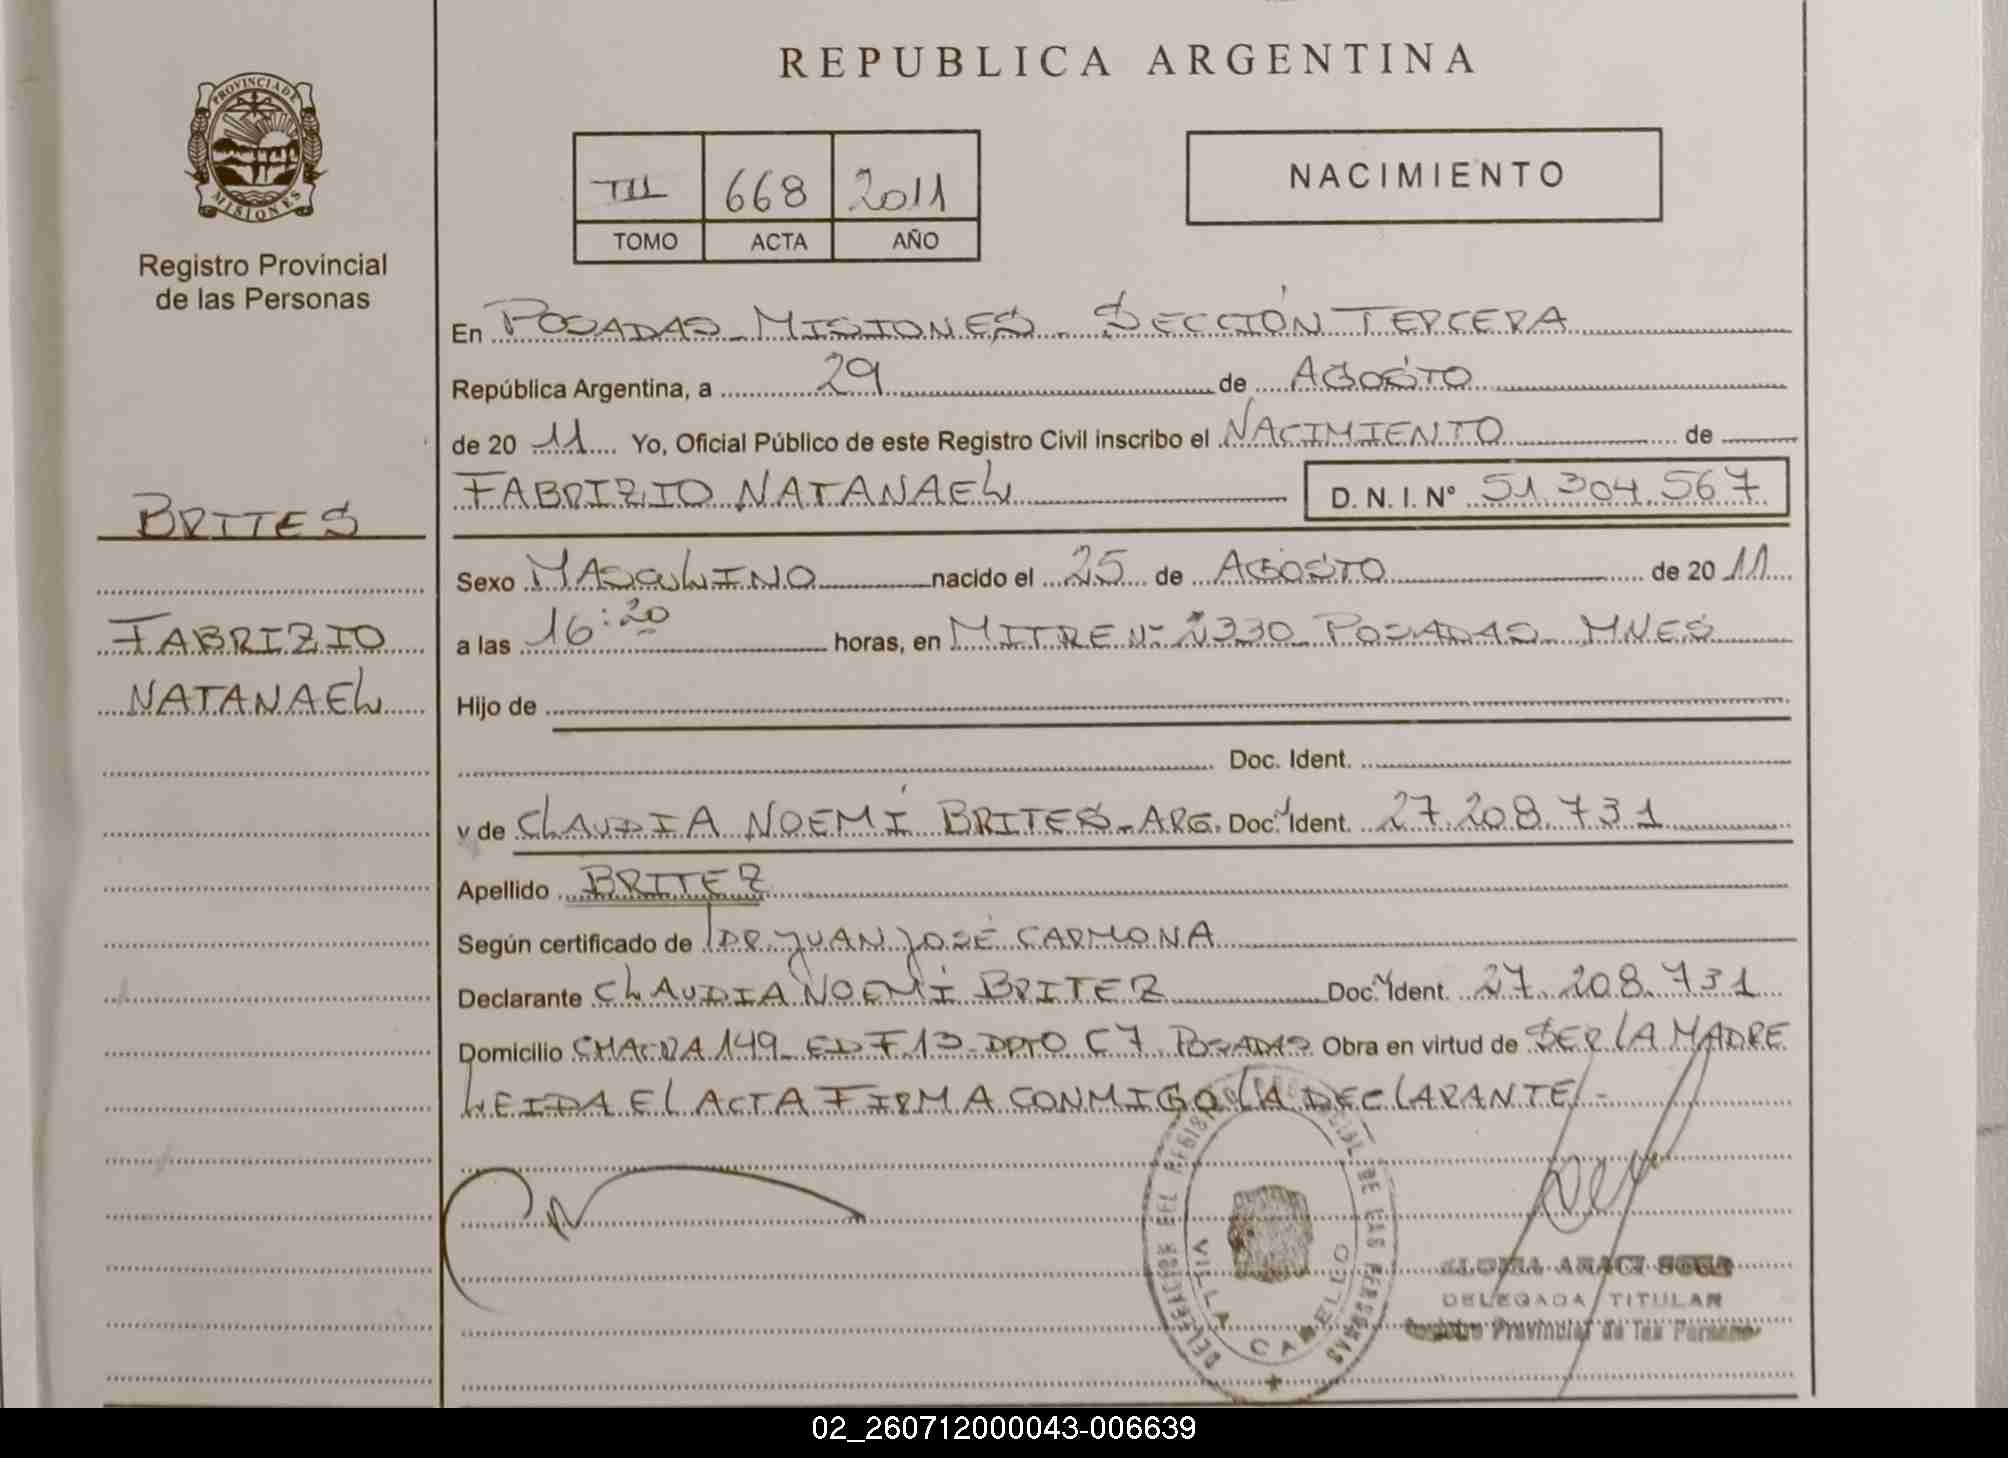 PROVINCIA DE
MISIONES
Registro Provincial
de las Personas
BRITES
FABRIZIO
NATANAEL
REPUBLICA ARGENTINA
III 668 2011
TOMO ACTA AÑO
NACIMIENTO
En POSADAS - MISIONES - SECCIÓN TERCERA
República Argentina, a 29 de AGOSTO
de 20 11 Yo, Oficial Público de este Registro Civil inscribo el NACIMIENTO de
FABRIZIO NATANAEL D. N. I. N° 51.304.567
Sexo MASCULINO nacido el 25 de AGOSTO de 20 11
a las 16:20 horas, en MITRE Nº 2330 POSADAS MNES
Hijo de
Doc. Ident.
y de CLAUDIA NOEMÍ BRITES - ARG. Doc. Ident. 27.208.731
Apellido BRITEZ
Según certificado de DR. JUAN JOSÉ CARMONA
Declarante CLAUDIA NOEMÍ BRITEZ Doc. Ident. 27.208.731
Domicilio CHACRA 149 - EDF. 13 - DPTO C7 POSADAS Obra en virtud de SER LA MADRE
LEIDA EL ACTA FIRMA CONMIGO LA DECLARANTE -
DELEGACION DEL REGISTRO PROVINCIAL DE LAS PERSONAS
VILLA CABELLO
ARACI
DELEGADA TITULAR
Registro Provincial de las Personas
02_260712000043-006639